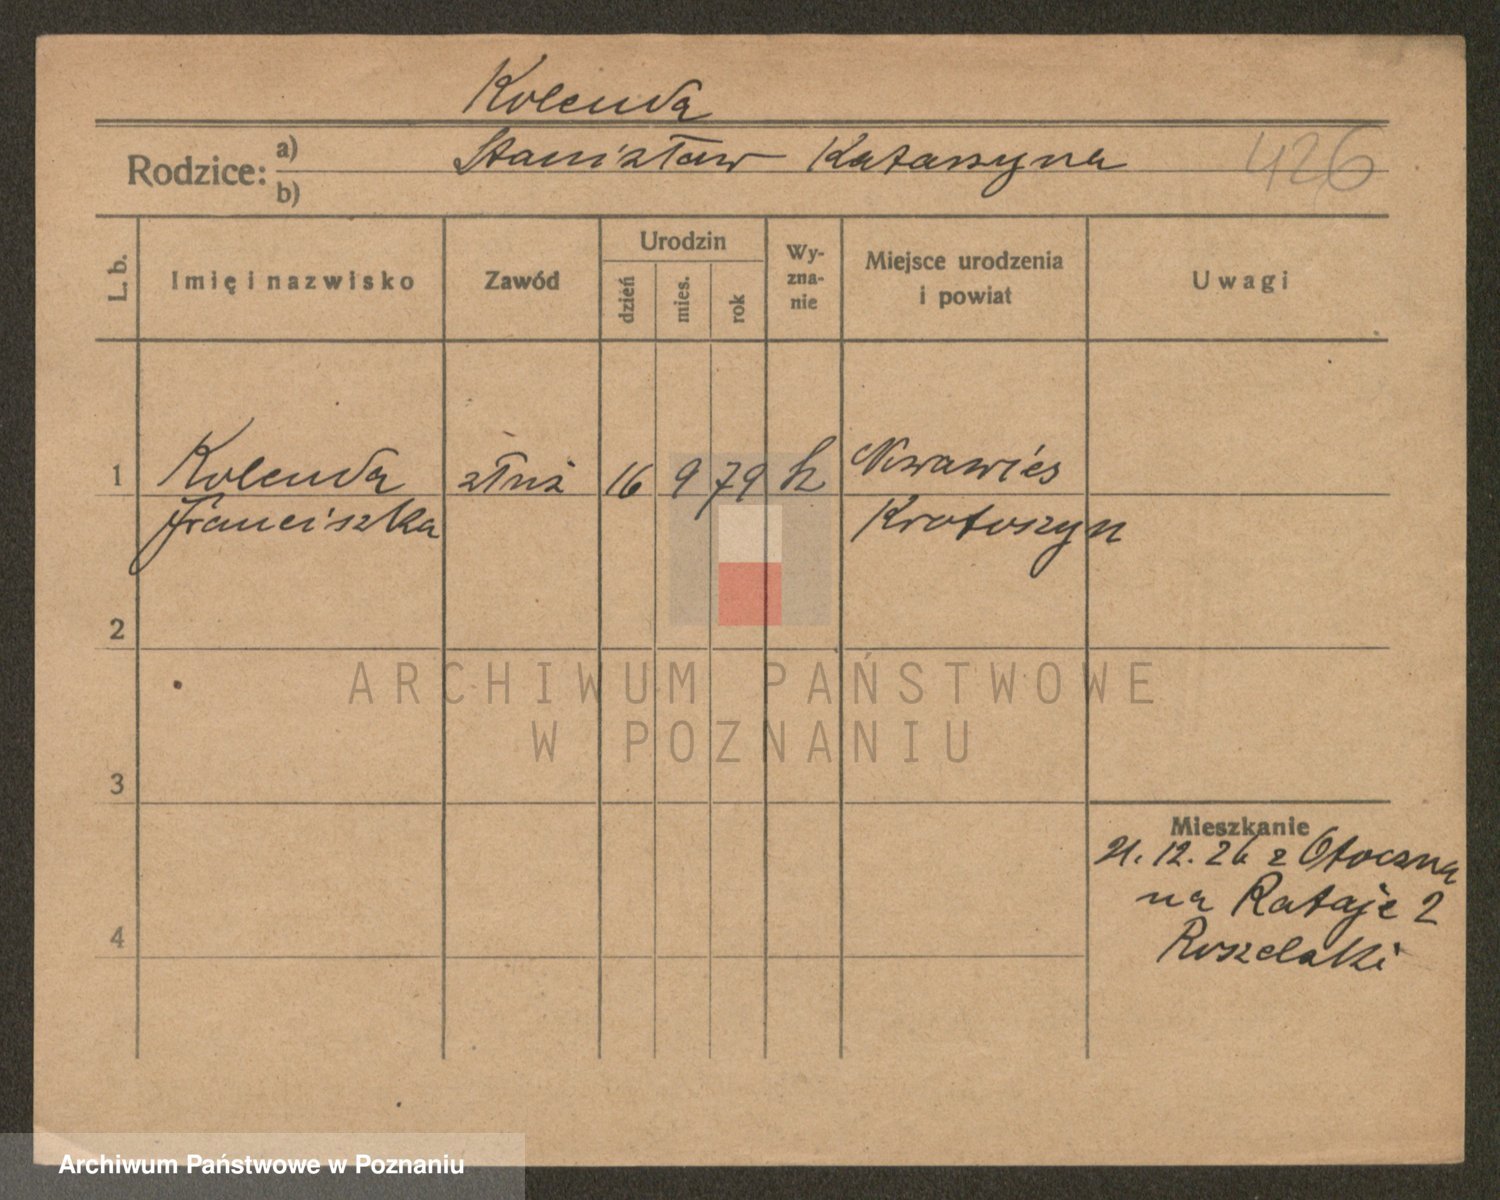 Kolenda
Rodzice: a) Stanisław Katarzyna 426
b)
L. b. Imię i nazwisko Zawód Urodzin dzień mies. rok Wy-zna-nie Miejsce urodzenia i powiat Uwagi
1 Kolenda służ 16 9 79 k Nowawieś
Franciszka Krotoszyn
2
3
Mieszkanie
21. 12. 26 z Otoczna
na Rataje 2
4
ARCHIWUM PAŃSTWOWE
W POZNANIU
Archiwum Państwowe w Poznaniu